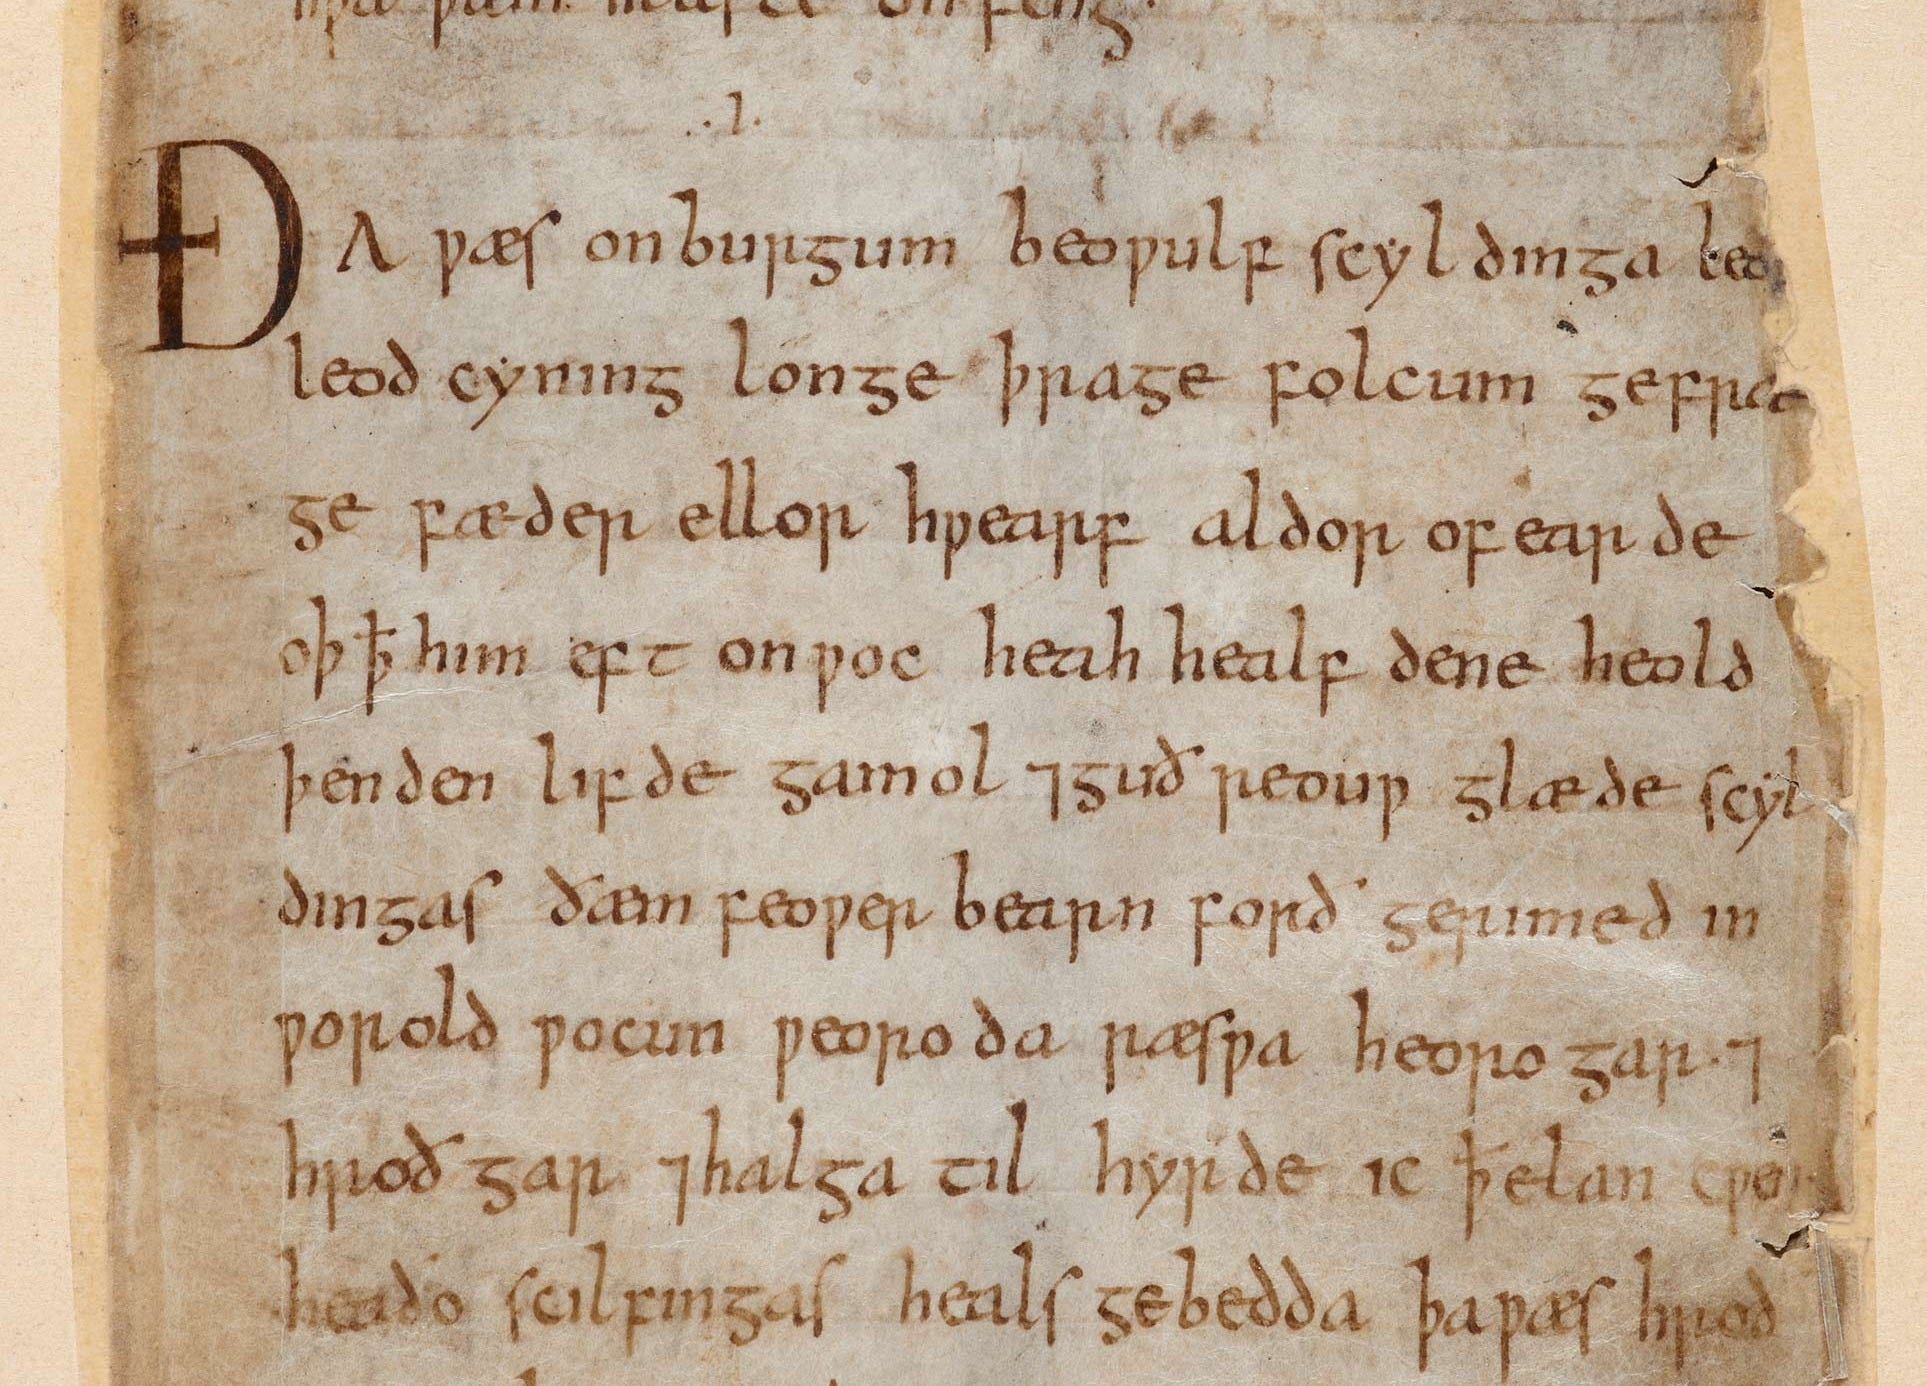 hƿa þæm hlæste onfeng.
.I.
ÐA ƿæs onburgum beoƿulf scyldinga leo
leod cyning longe þrage folcum gefræ
ge fæder ellor hƿearf aldor of earde
oþ ꝥ him eft onƿoc heah healfdene heold
þenden lifde gamol ⁊ guð reouƿ glæde scyl
dingas ðæm feoƿer bearn forð gerimed in
ƿorold ƿocun ƿeoroda ræsƿa heorogar. ⁊
hroðgar ⁊ halga til hyrde ic ꝥ elan cƿen
heaðo scilfingas heals gebedda þa ƿæs hroð